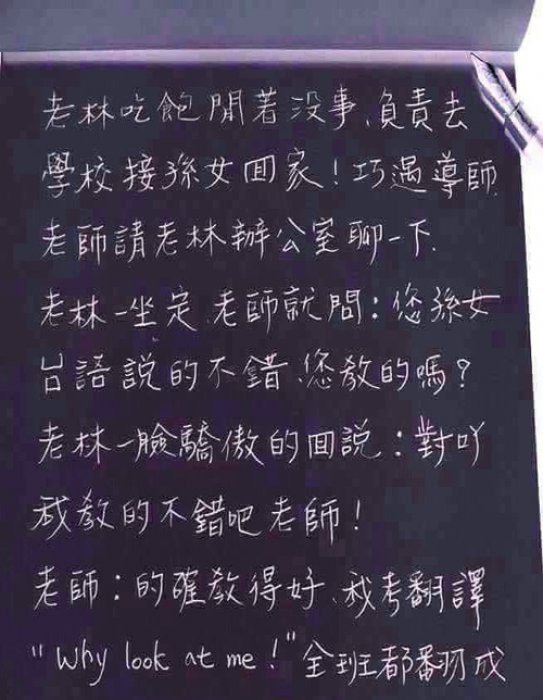 老林吃飽閒著沒事、負責去
學校接孫女回家！巧遇導師
老師請老林辦公室聊一下.
老林一坐定.老師就問：您孫女
台語說的不錯、您教的嗎？
老林一臉驕傲的回說：對吖
我教的不錯吧老師！
老師：的確教得好、我考翻譯
"Why look at me！"全班都翻成